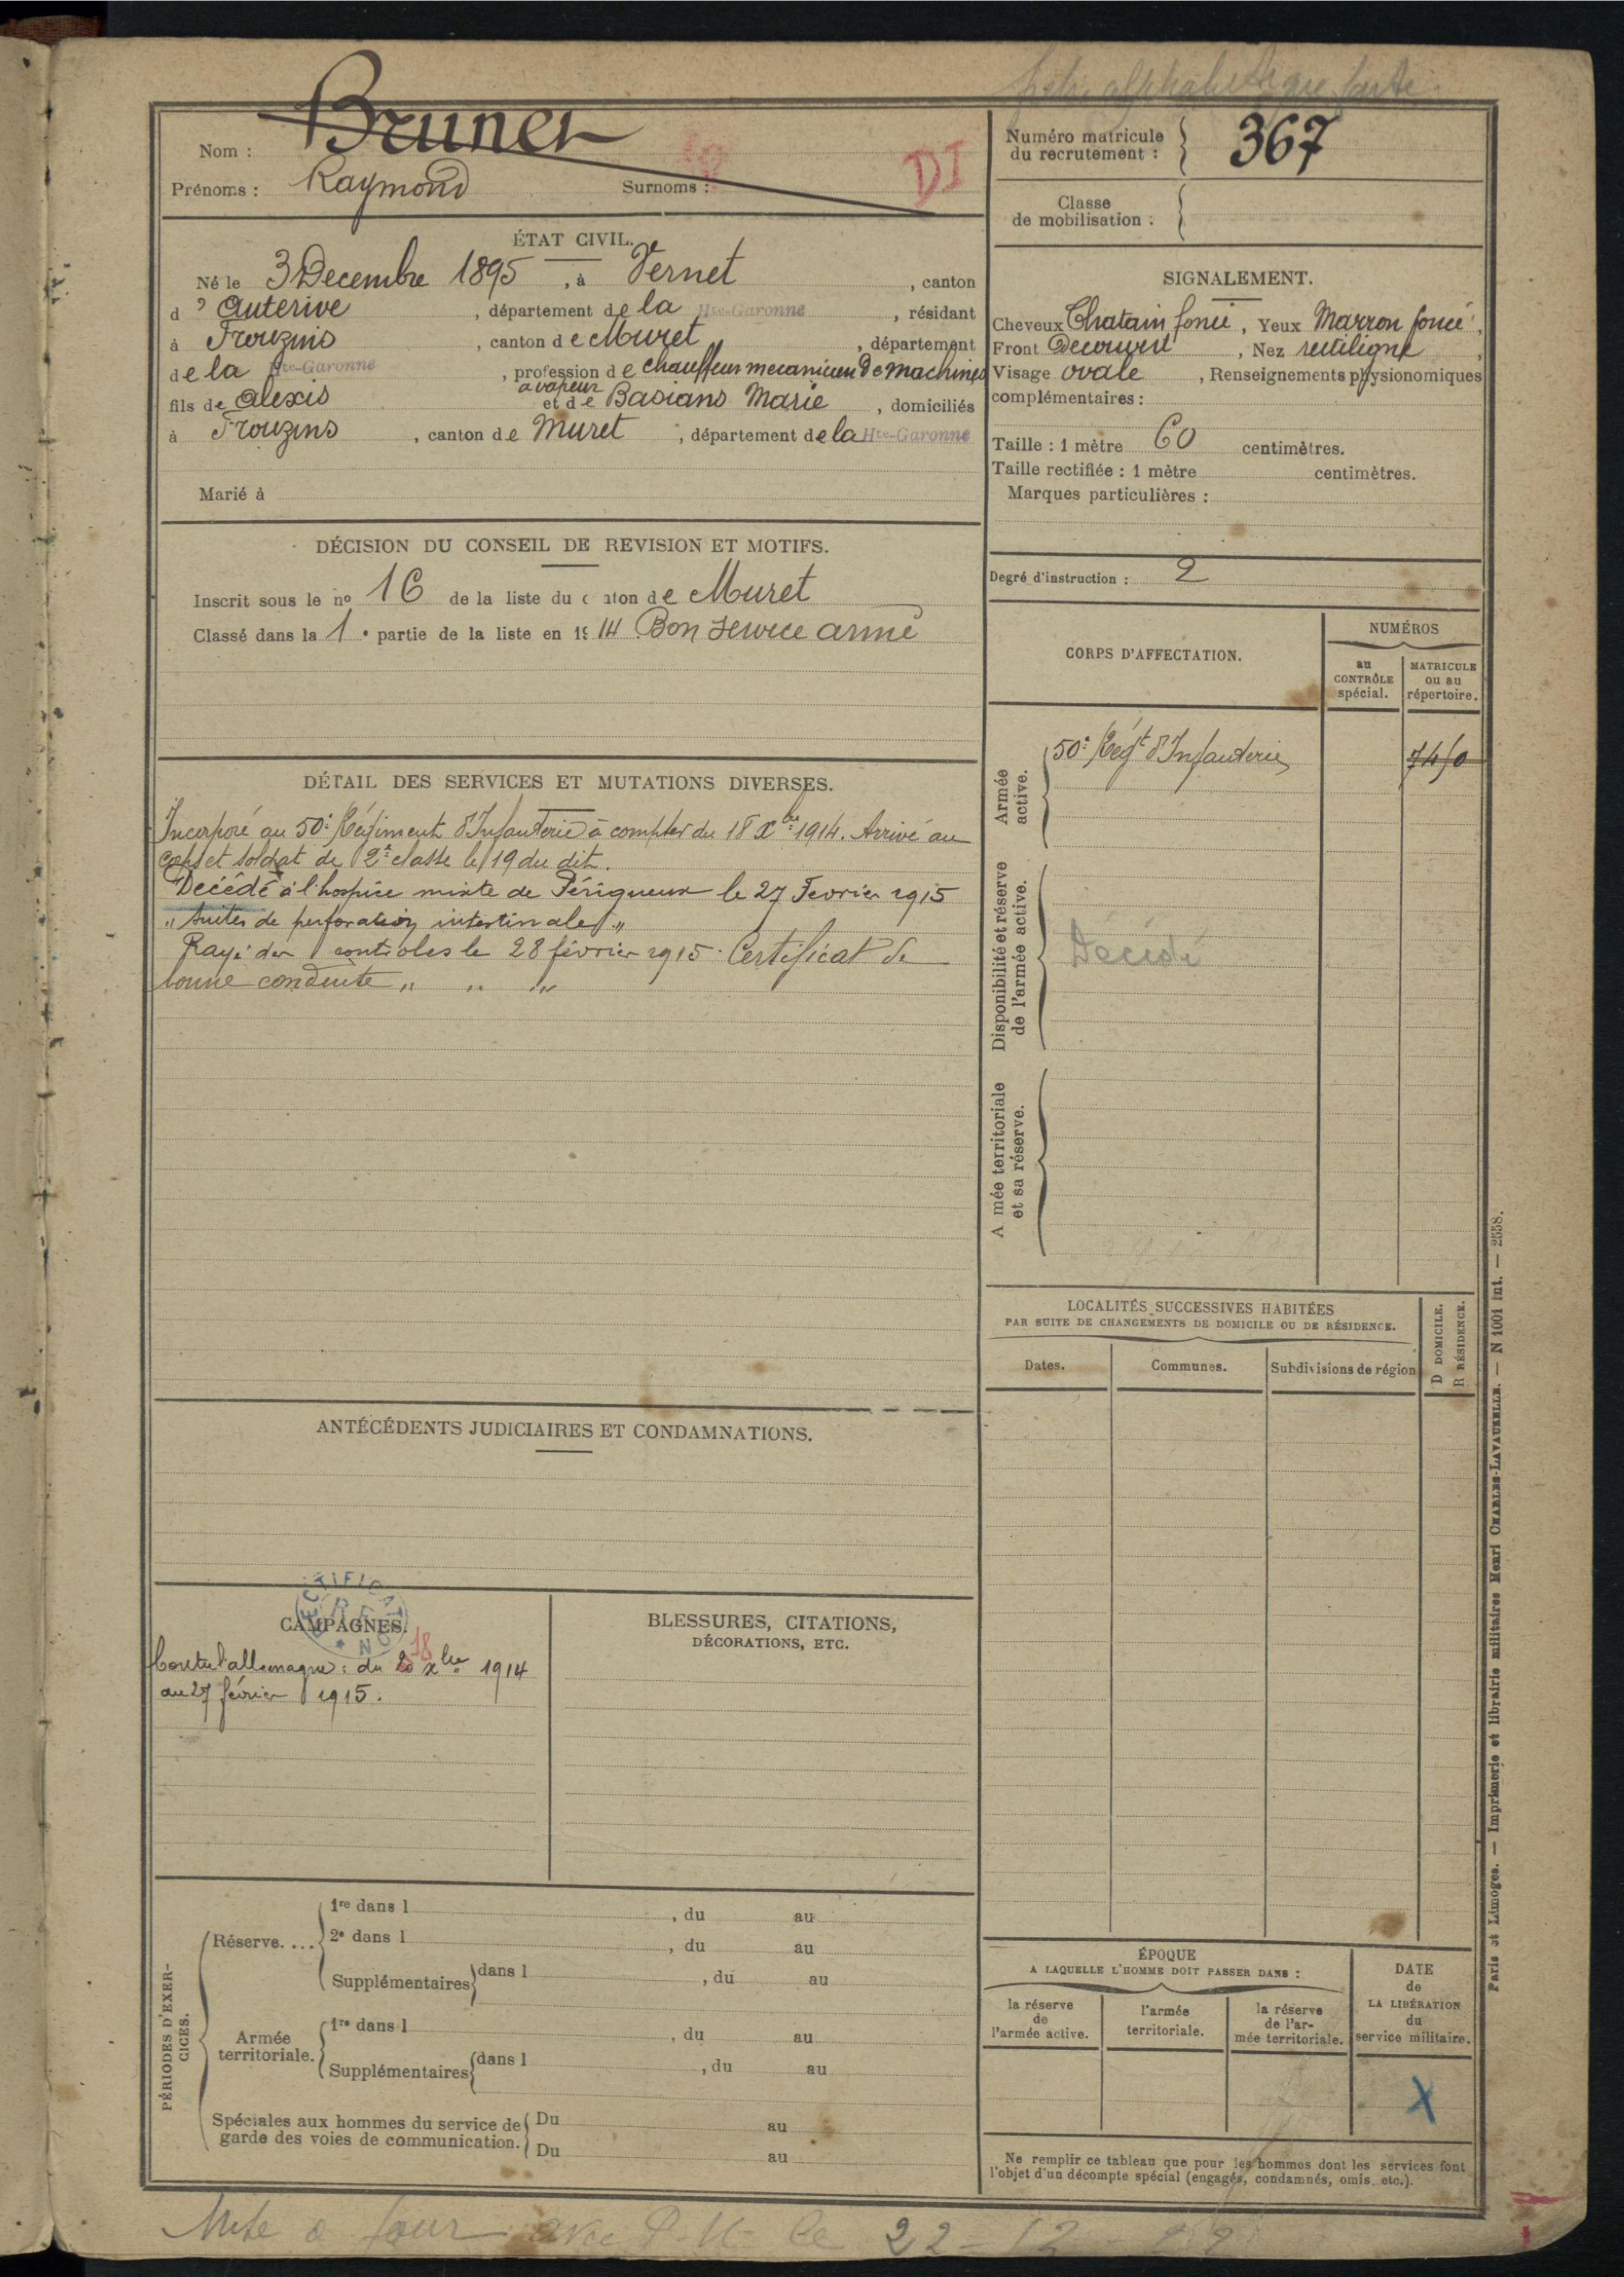 fiche alphabétique faite
Nom : Brunet
Prénoms : Raymond Surnoms :
DI
Numéro matricule du recrutement : 367
Classe de mobilisation :
ÉTAT CIVIL.
Né le 3 Decembre 1895, à Vernet, canton
d'Auterive, département de la Hte-Garonne, résidant
à Frouzins, canton de Muret, département
de la Hte-Garonne, profession de chauffeur mecanicien de machines
a vapeur
fils de Alexis et de Basians Marie, domiciliés
à Frouzins, canton de Muret, département de la Hte-Garonne
Marié à
SIGNALEMENT.
Cheveux Chatain foncé, Yeux Marron foncé,
Front Decouvert, Nez rectiligne,
Visage ovale, Renseignements physionomiques
complémentaires :
Taille : 1 mètre 60 centimètres.
Taille rectifiée : 1 mètre centimètres.
Marques particulières :
DÉCISION DU CONSEIL DE REVISION ET MOTIFS.
Inscrit sous le no 16 de la liste du canton de Muret
Classé dans la 1e partie de la liste en 1914 Bon service armé
Degré d'instruction : 2
CORPS D'AFFECTATION.
NUMÉROS
au CONTRÔLE spécial.
MATRICULE ou au répertoire.
Armée active.
50e Régt d'Infanterie 7450
Disponibilité et réserve de l'armée active.
Décédé
A mée territoriale et sa réserve.
DÉTAIL DES SERVICES ET MUTATIONS DIVERSES.
Incorporé au 50e Régiment d'Infanterie à compter du 18 Xbre 1914. Arrivé au
corps et soldat de 2e classe le 19 du dit.
Décédé à l'hospice mixte de Périgueux le 27 Fevrier 1915
"suites de perforation intestinale"
Rayé des contrôles le 28 février 1915. Certificat de
bonne conduite " " "
LOCALITÉS SUCCESSIVES HABITÉES
PAR SUITE DE CHANGEMENTS DE DOMICILE OU DE RÉSIDENCE.
Dates. Communes. Subdivisions de région
D DOMICILE.
R RÉSIDENCE.
ANTÉCÉDENTS JUDICIAIRES ET CONDAMNATIONS.
RECTIFICATION
CAMPAGNES.
18
Contre l'allemagne : du 20 xbre 1914
au 27 février 1915.
BLESSURES, CITATIONS,
DÉCORATIONS, ETC.
PÉRIODES D'EXERCICES.
Réserve....
1re dans l , du au
2e dans l , du au
Supplémentaires dans l , du au
Armée territoriale.
1re dans l , du au
Supplémentaires dans l , du au
Spéciales aux hommes du service de
garde des voies de communication.
Du au
Du au
ÉPOQUE
A LAQUELLE L'HOMME DOIT PASSER DANS :
la réserve de l'armée active.
l'armée territoriale.
la réserve de l'armée territoriale.
DATE de LA LIBÉRATION du service militaire.
X
Ne remplir ce tableau que pour les hommes dont les services font
l'objet d'un décompte spécial (engagés, condamnés, omis, etc.).
Paris et Limoges. — Imprimerie et librairie militaires Henri CHARLES-LAVAUZELLE. — N 1001 int. — 2558.
Mise à jour avec le 22-12